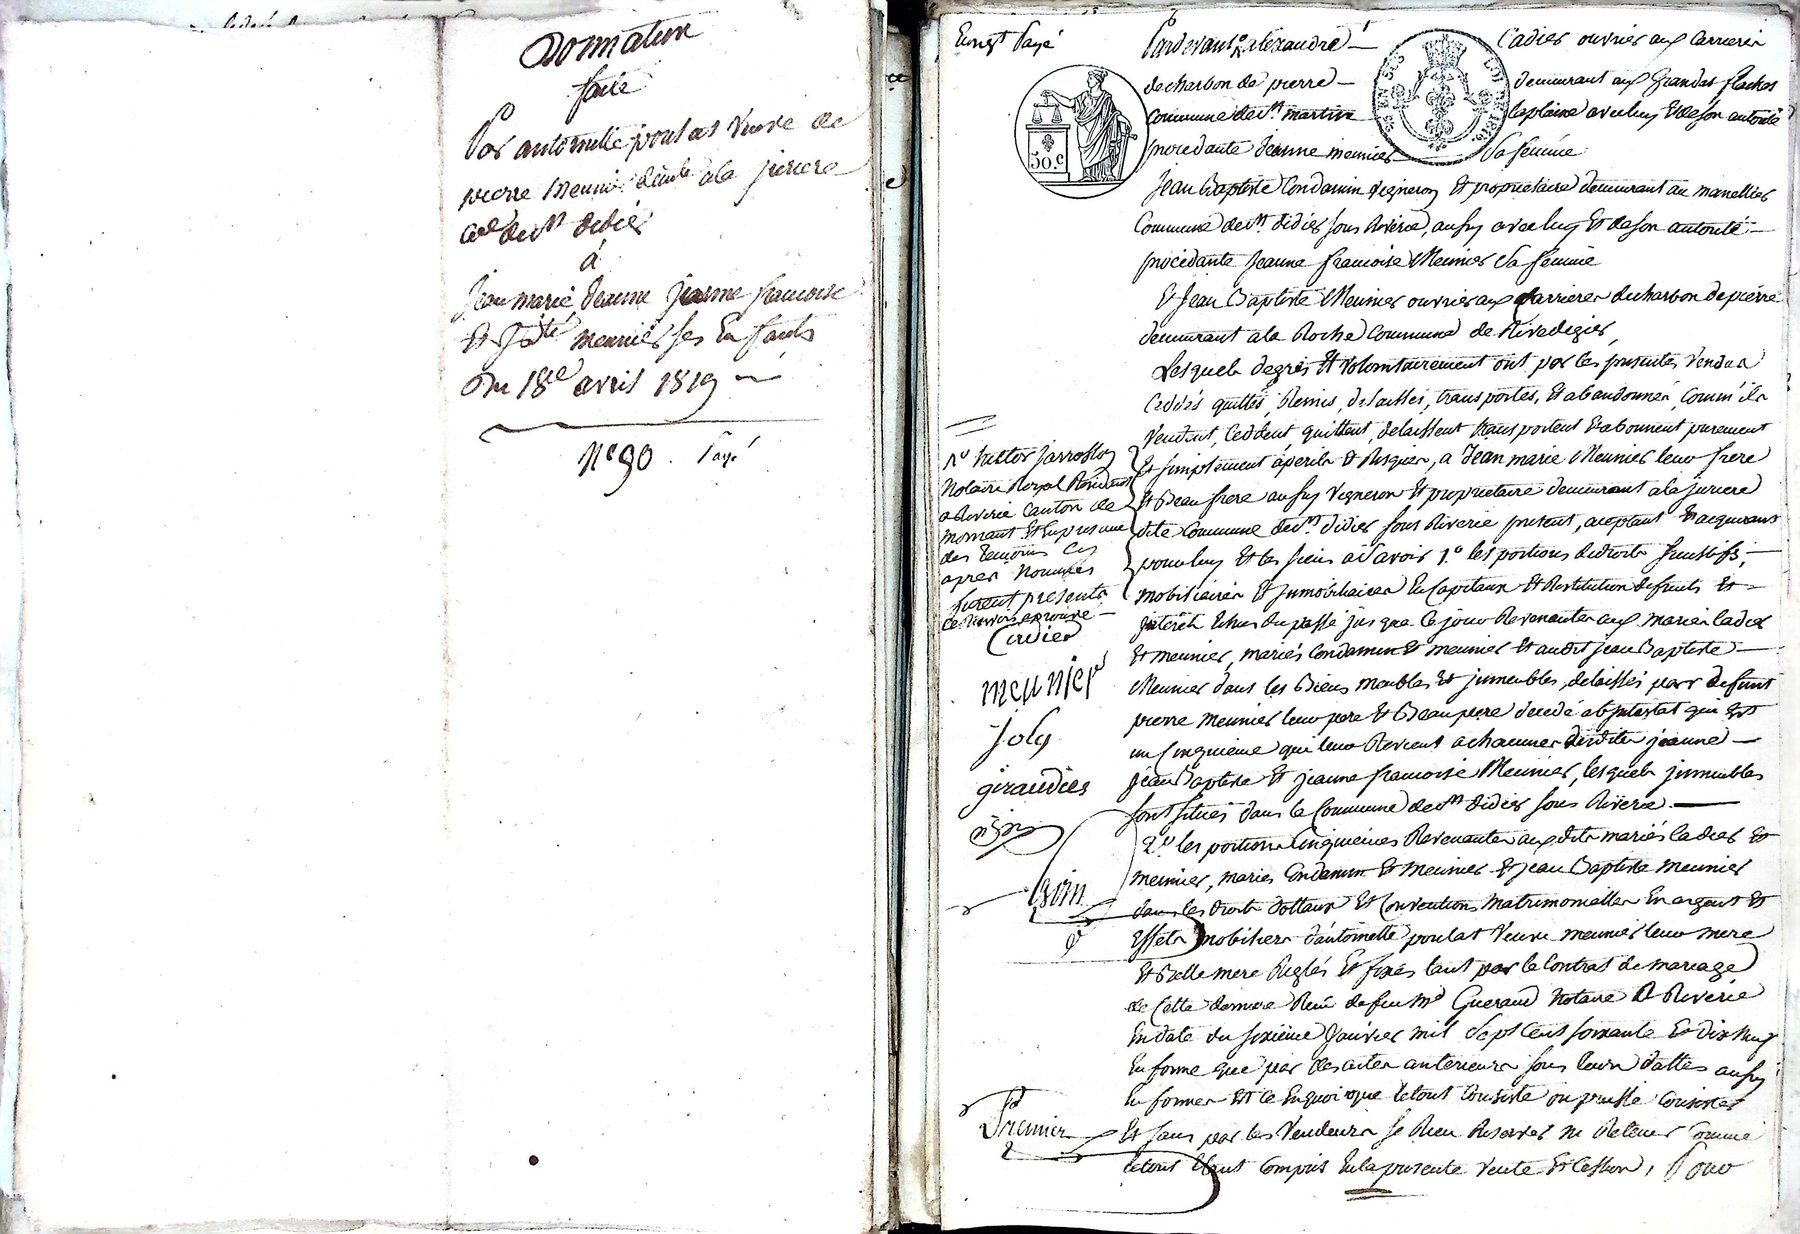 Donnation
faite
Par antoinette poulat Veuve de
pierre Meunier demte a la juriere
cne de st didier
à
Jean marie, Jeanne Jeanne francoise
Et J. Bte meunier ses Enfants
Du 18e avril 1819
No 90. Payé
Enregt Payé
Pardevant alexandre
Cadier ouvrier aux Carrieres
de charbon de pierre
demeurant aux grandes flaches
Commune de st. martin
laplaine avec luy Et de son autorité
procedante Jeanne meunier
Sa femme
50.C
Jean Baptiste Condamin vigneron Et proprietaire demeurant au
Commune de st didier sous Riverie, aussy avec luy Et de son autorité
procedante Jeanne francoise Meunier Sa femme
Et Jean Baptiste Meunier ouvrier aux Carrieres de charbon de pierre
demeurant a la Roche Commune de Rivedegier,
Lesquels de gres Et volontairement ont par les presentes Vendus
Ceddés quittés, Remis, delaissés, transportés, Et abandonnés, Comm'ils
Vendent, Ceddent, quittent, delaissent transportent Et abonnent purement
Et simplement a perils & Risques, a Jean marie Meunier leur frere
Et Beau frere aussy Vigneron Et proprietaire demeurant a la juriere
dite Commune de st. didier sous Riverie present, aceptant Et acquerant
pour luy Et les siens a Savoir 1.o les portions de droits
mobiliaires Et jmmobiliaires En Capitaux Et Restitution de fruits Et
jnterêts Echus du passé jusque Ce jour Revenantes aux mariés Cadier
Et meunier, mariés Condamin Et meunier Et audit jean Baptiste
Meunier dans les Biens meubles Et jmmeubles, delaissés par defunt
pierre meunier leur pere Et Beau pere decedé abjntestat qui Est
un Cinquieme qui leur Revient a chacunes desdites jeanne
jean Baptiste Et jeanne francoise Meunier, lesquels jmmeubles
sont situés dans la Commune de st didier sous Riverie
2.o les portions Cinquiemes Revenantes auxdits mariés Cadier Et
meunier, mariés Condamin Et Meunier & jean Baptiste Meunier
dans les droits dottaux Et Conventions Matrimonialles En argent Et
Effets mobiliers d'antoinette poulat Veuve meunier leur mere
Et Belle mere Reglés Et fixés tant par le Contrat de mariage
de Cette derniere Recu de feu Me Gueraud Notaire a Riverie
En date du sixieme Janvier mil Sept Cent soixante Et dix neuf
En forme que par des actes anterieurs sous leurs dattes aussy
En formes Et Ce En quoi que le tout Consiste ou puisse Consister
Et sans par les Vendeurs se Rien Reserver ni Retenir Comme
le tout Etant Compris En la presente Vente Et Cession, Pour
Me hector jarrosson
Notaire Royal Residant
a Riverie Canton de
mornant Et En presence
des temoins Cy
apres Nommés
furent presents
Ce Renvoy aprouvé
Cadier
meunier
joly
giraudier